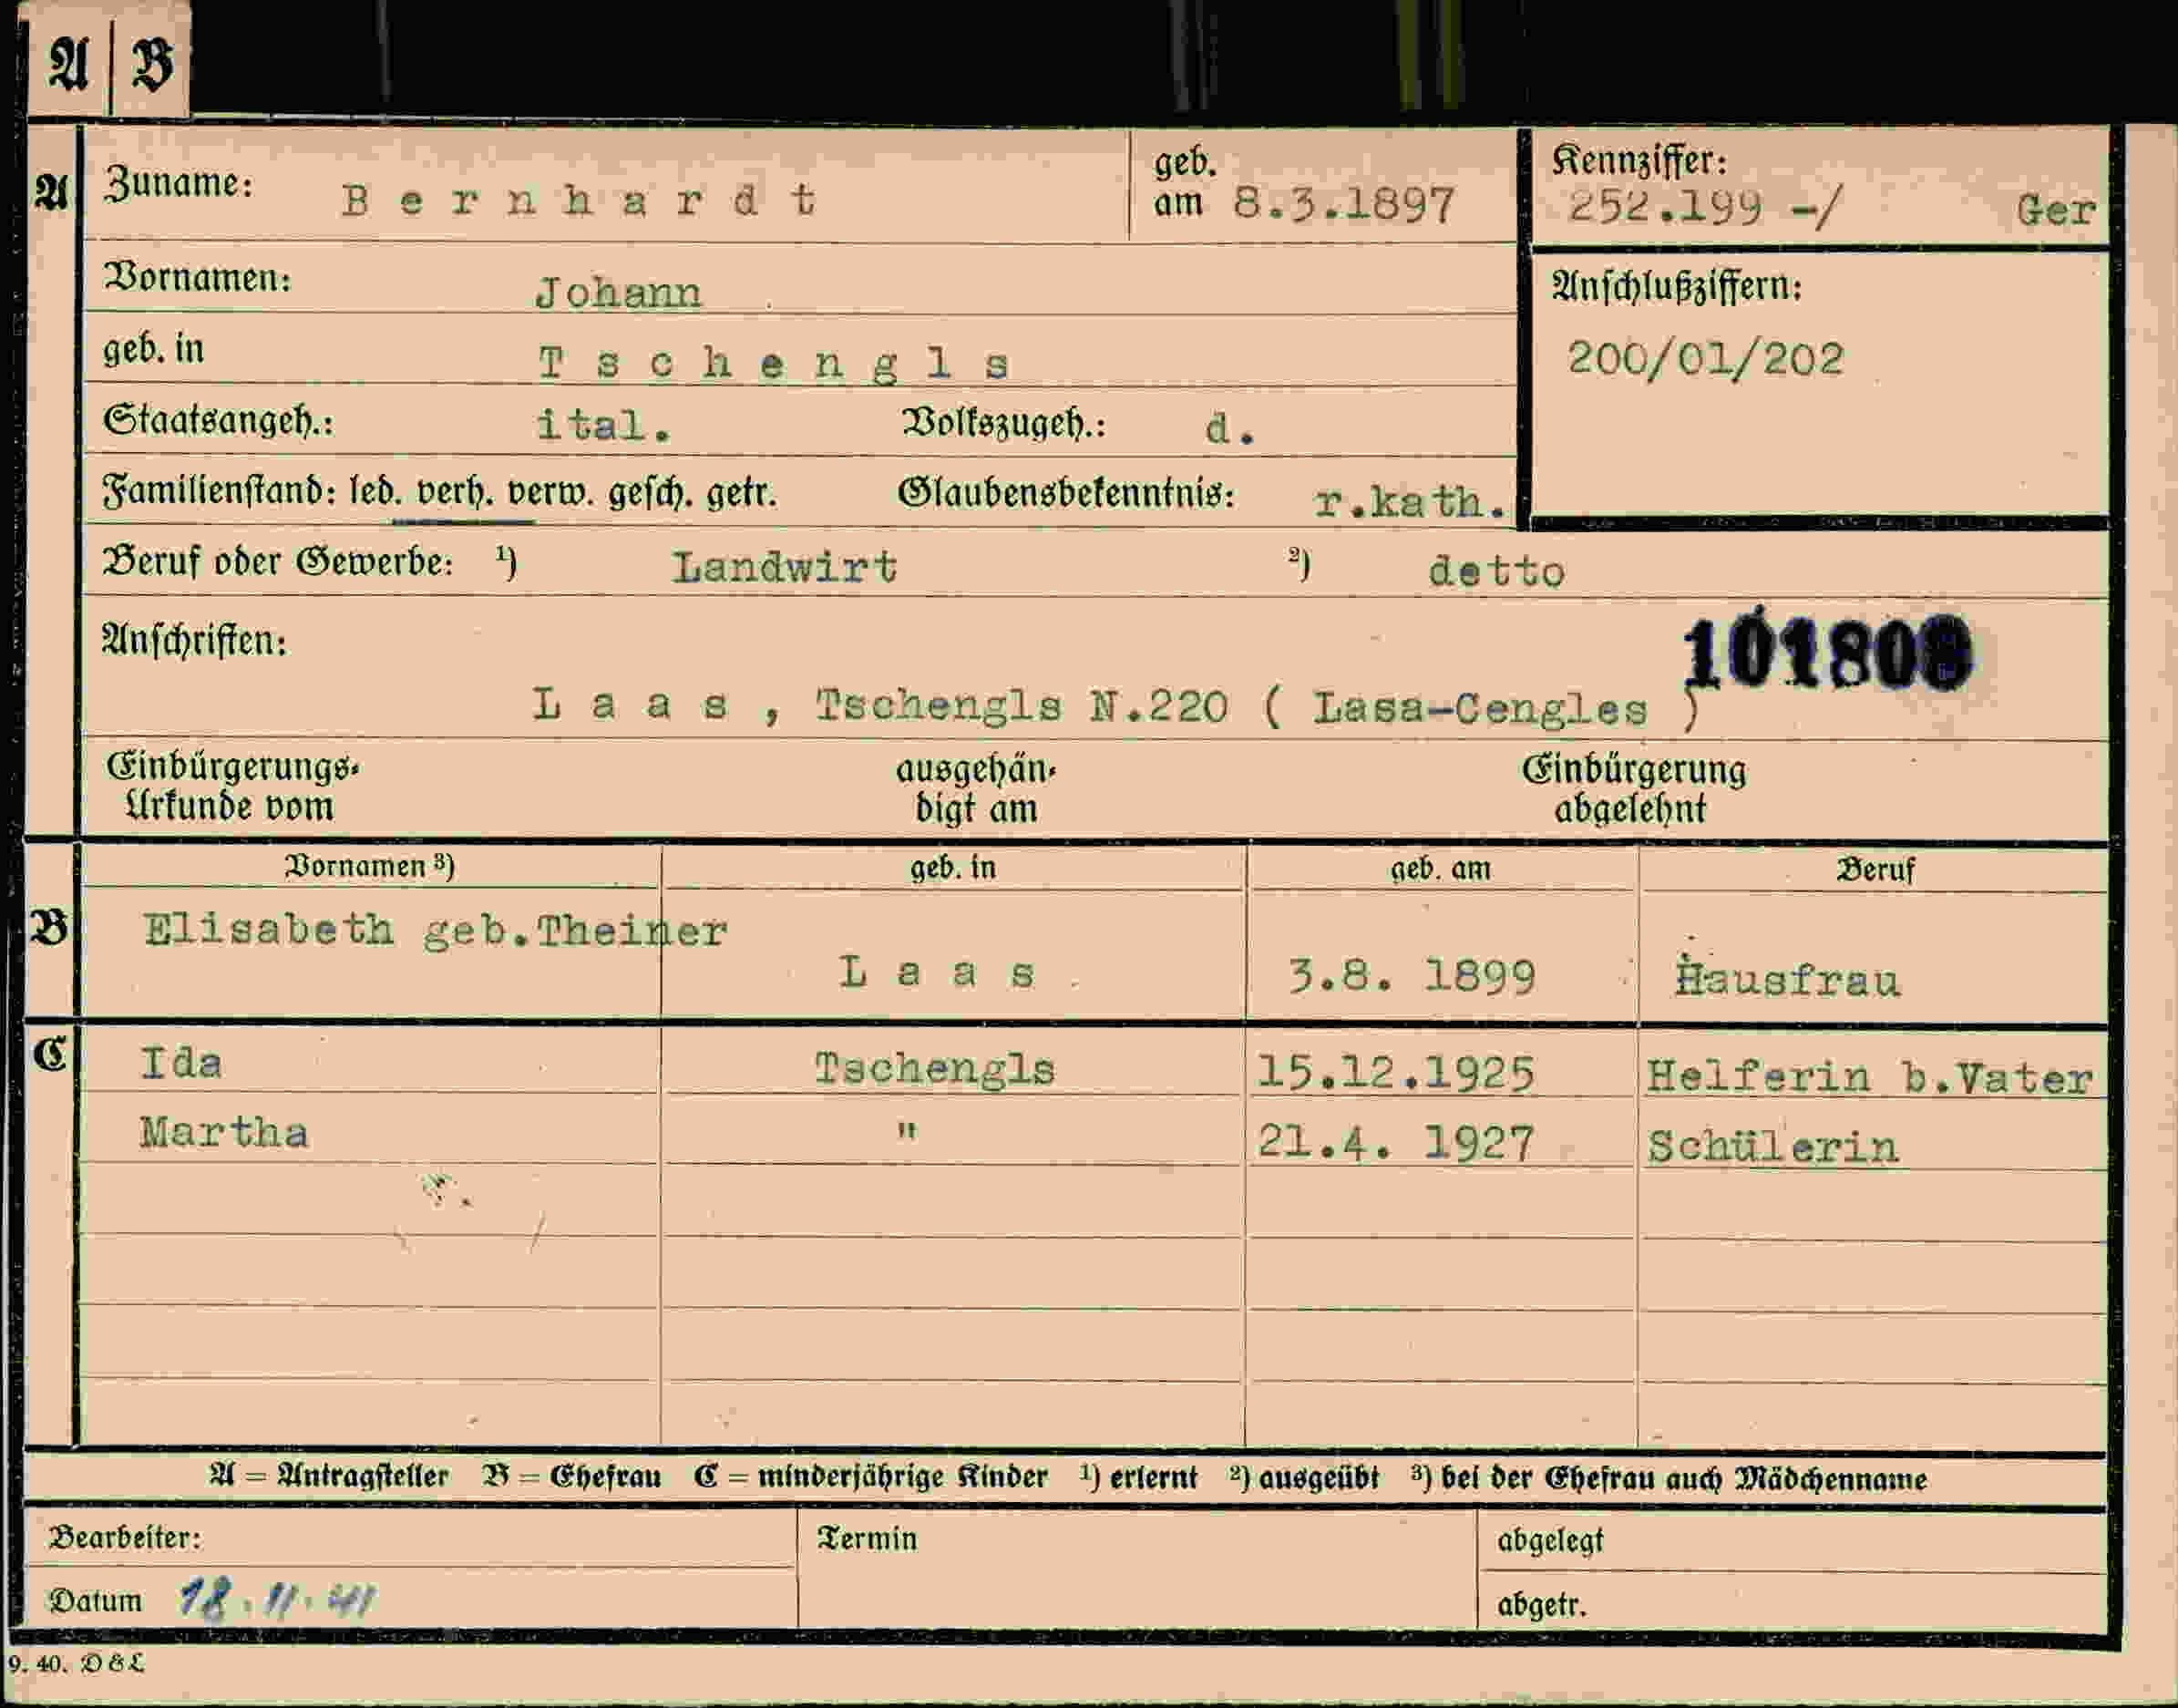 A | B
A Zuname: Bernhardt geb. am 8.3.1897 Kennziffer: 252.199 -/ Ger
Vornamen: Johann
Anschlußziffern:
geb. in Tschengls
200/01/202
Staatsangeh.: ital. Volkszugeh.: d.
Familienstand: led. verh. verw. gesch. getr. Glaubensbekenntnis: r.kath.
Beruf oder Gewerbe: ¹) Landwirt ²) detto
Anschriften:
Laas, Tschengls N.220 ( Lasa-Cengles )
Einbürgerungs- ausgehän- Einbürgerung
Urkunde vom digt am abgelehnt
Vornamen ³) geb. in geb. am Beruf
B Elisabeth geb.Theiner
Laas 3.8. 1899 Hausfrau
C Ida Tschengls 15.12.1925 Helferin b.Vater
Martha " 21.4. 1927 Schülerin
A = Antragsteller B = Ehefrau C = minderjährige Kinder ¹) erlernt ²) ausgeübt ³) bei der Ehefrau auch Mädchenname
Bearbeiter: Termin abgelegt
Datum 18.11.41 abgetr.
9. 40. D & L